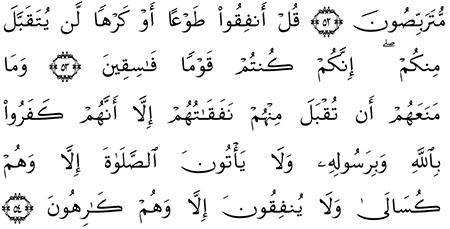 مُّتَرَبِّصُونَ ٥٢ قُلْ أَنفِقُوا۟ طَوْعًا أَوْ كَرْهًا لَّن يُتَقَبَّلَ
مِنكُمْ ۖ إِنَّكُمْ كُنتُمْ قَوْمًا فَـٰسِقِينَ ٥٣ وَمَا
مَنَعَهُمْ أَن تُقْبَلَ مِنْهُمْ نَفَقَـٰتُهُمْ إِلَّآ أَنَّهُمْ كَفَرُوا۟
بِٱللَّهِ وَبِرَسُولِهِۦ وَلَا يَأْتُونَ ٱلصَّلَوٰةَ إِلَّا وَهُمْ
كُسَالَىٰ وَلَا يُنفِقُونَ إِلَّا وَهُمْ كَـٰرِهُونَ ٥٤